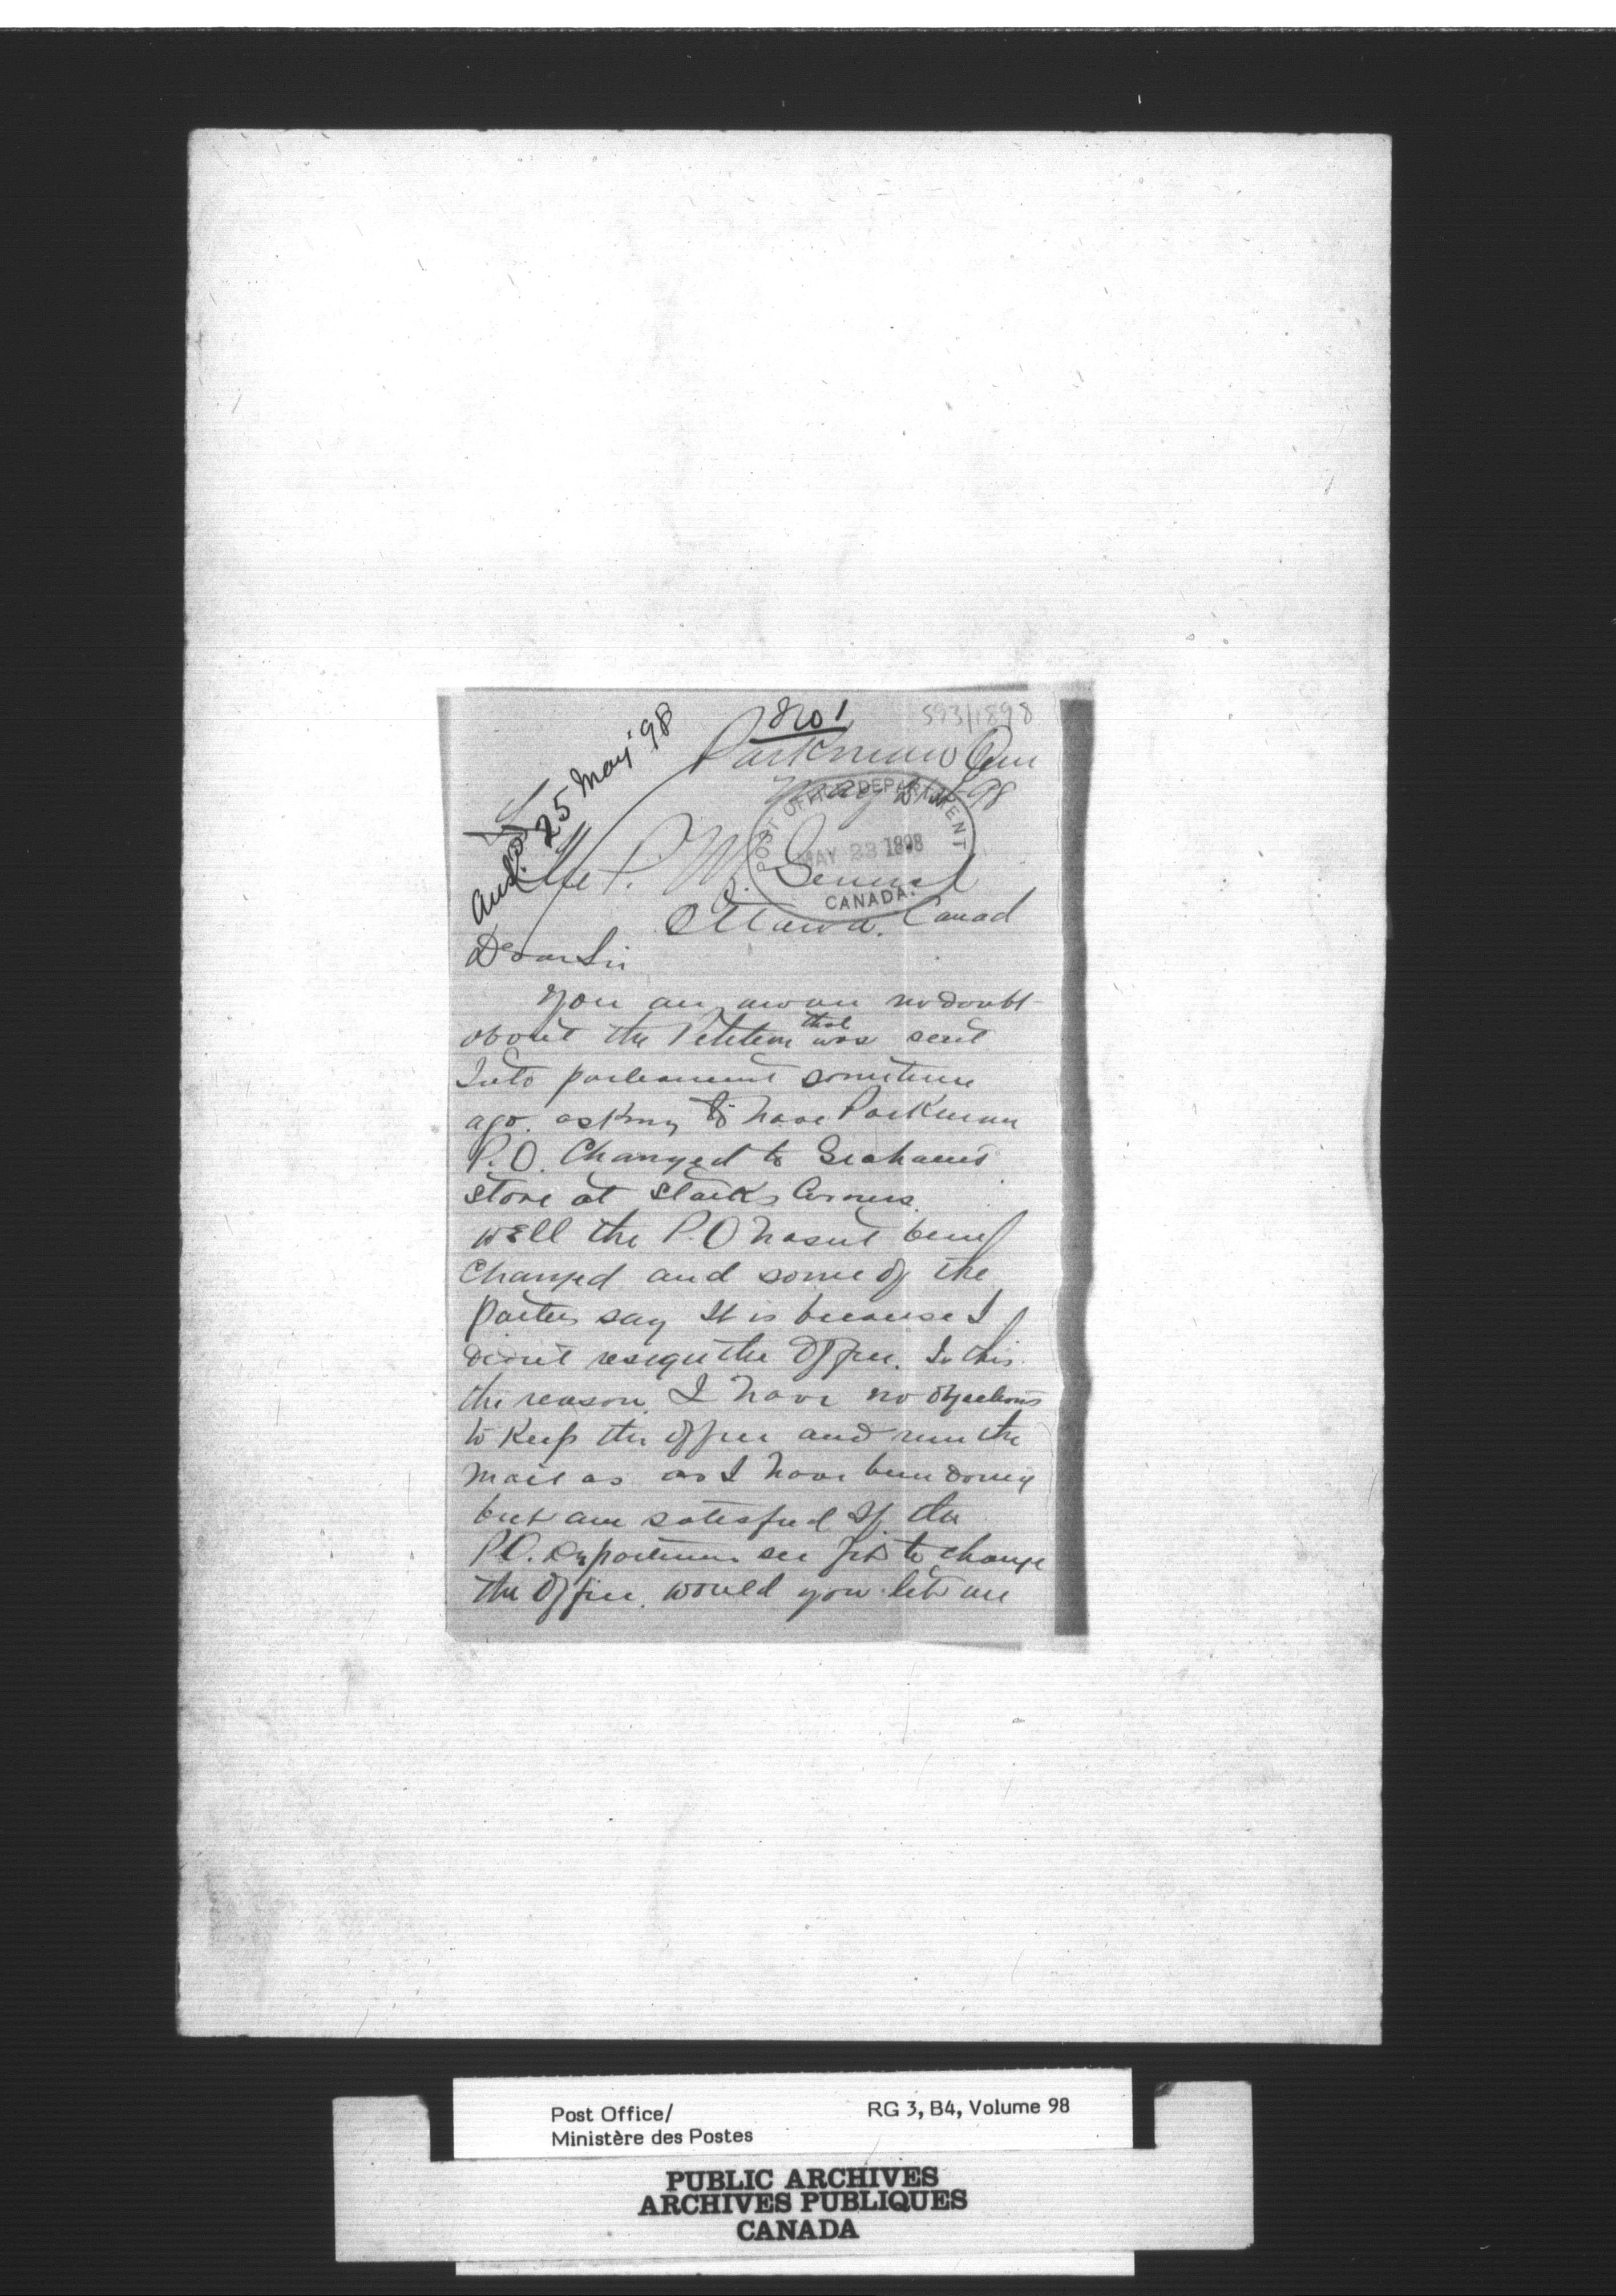 No 1
593/1898
Parkman Que
May 21st 98
Ansd. 25 May '98
POST OFFICE DEPARTMENT
MAY 23 1898
CANADA.
The P. M. General
Ottawa. Canad
Dear Sir
You are aware no doubt
about the Petition that was sent
Into parliament sometime
ago. asking to have Parkman
P.O. Changed to Grahams
store at Starks Corners.
well the P.O hasnt been
Changed and some of the
parties say It is because I
didnt resign the Office. Is this
the reason. I have no objections
to Keep the office and run the
mail as as I have been doing
but am satisfied If the
P.O. Department see fit to change
the Office. would you let me
Post Office/
Ministère des Postes
RG 3, B4, Volume 98
PUBLIC ARCHIVES
ARCHIVES PUBLIQUES
CANADA